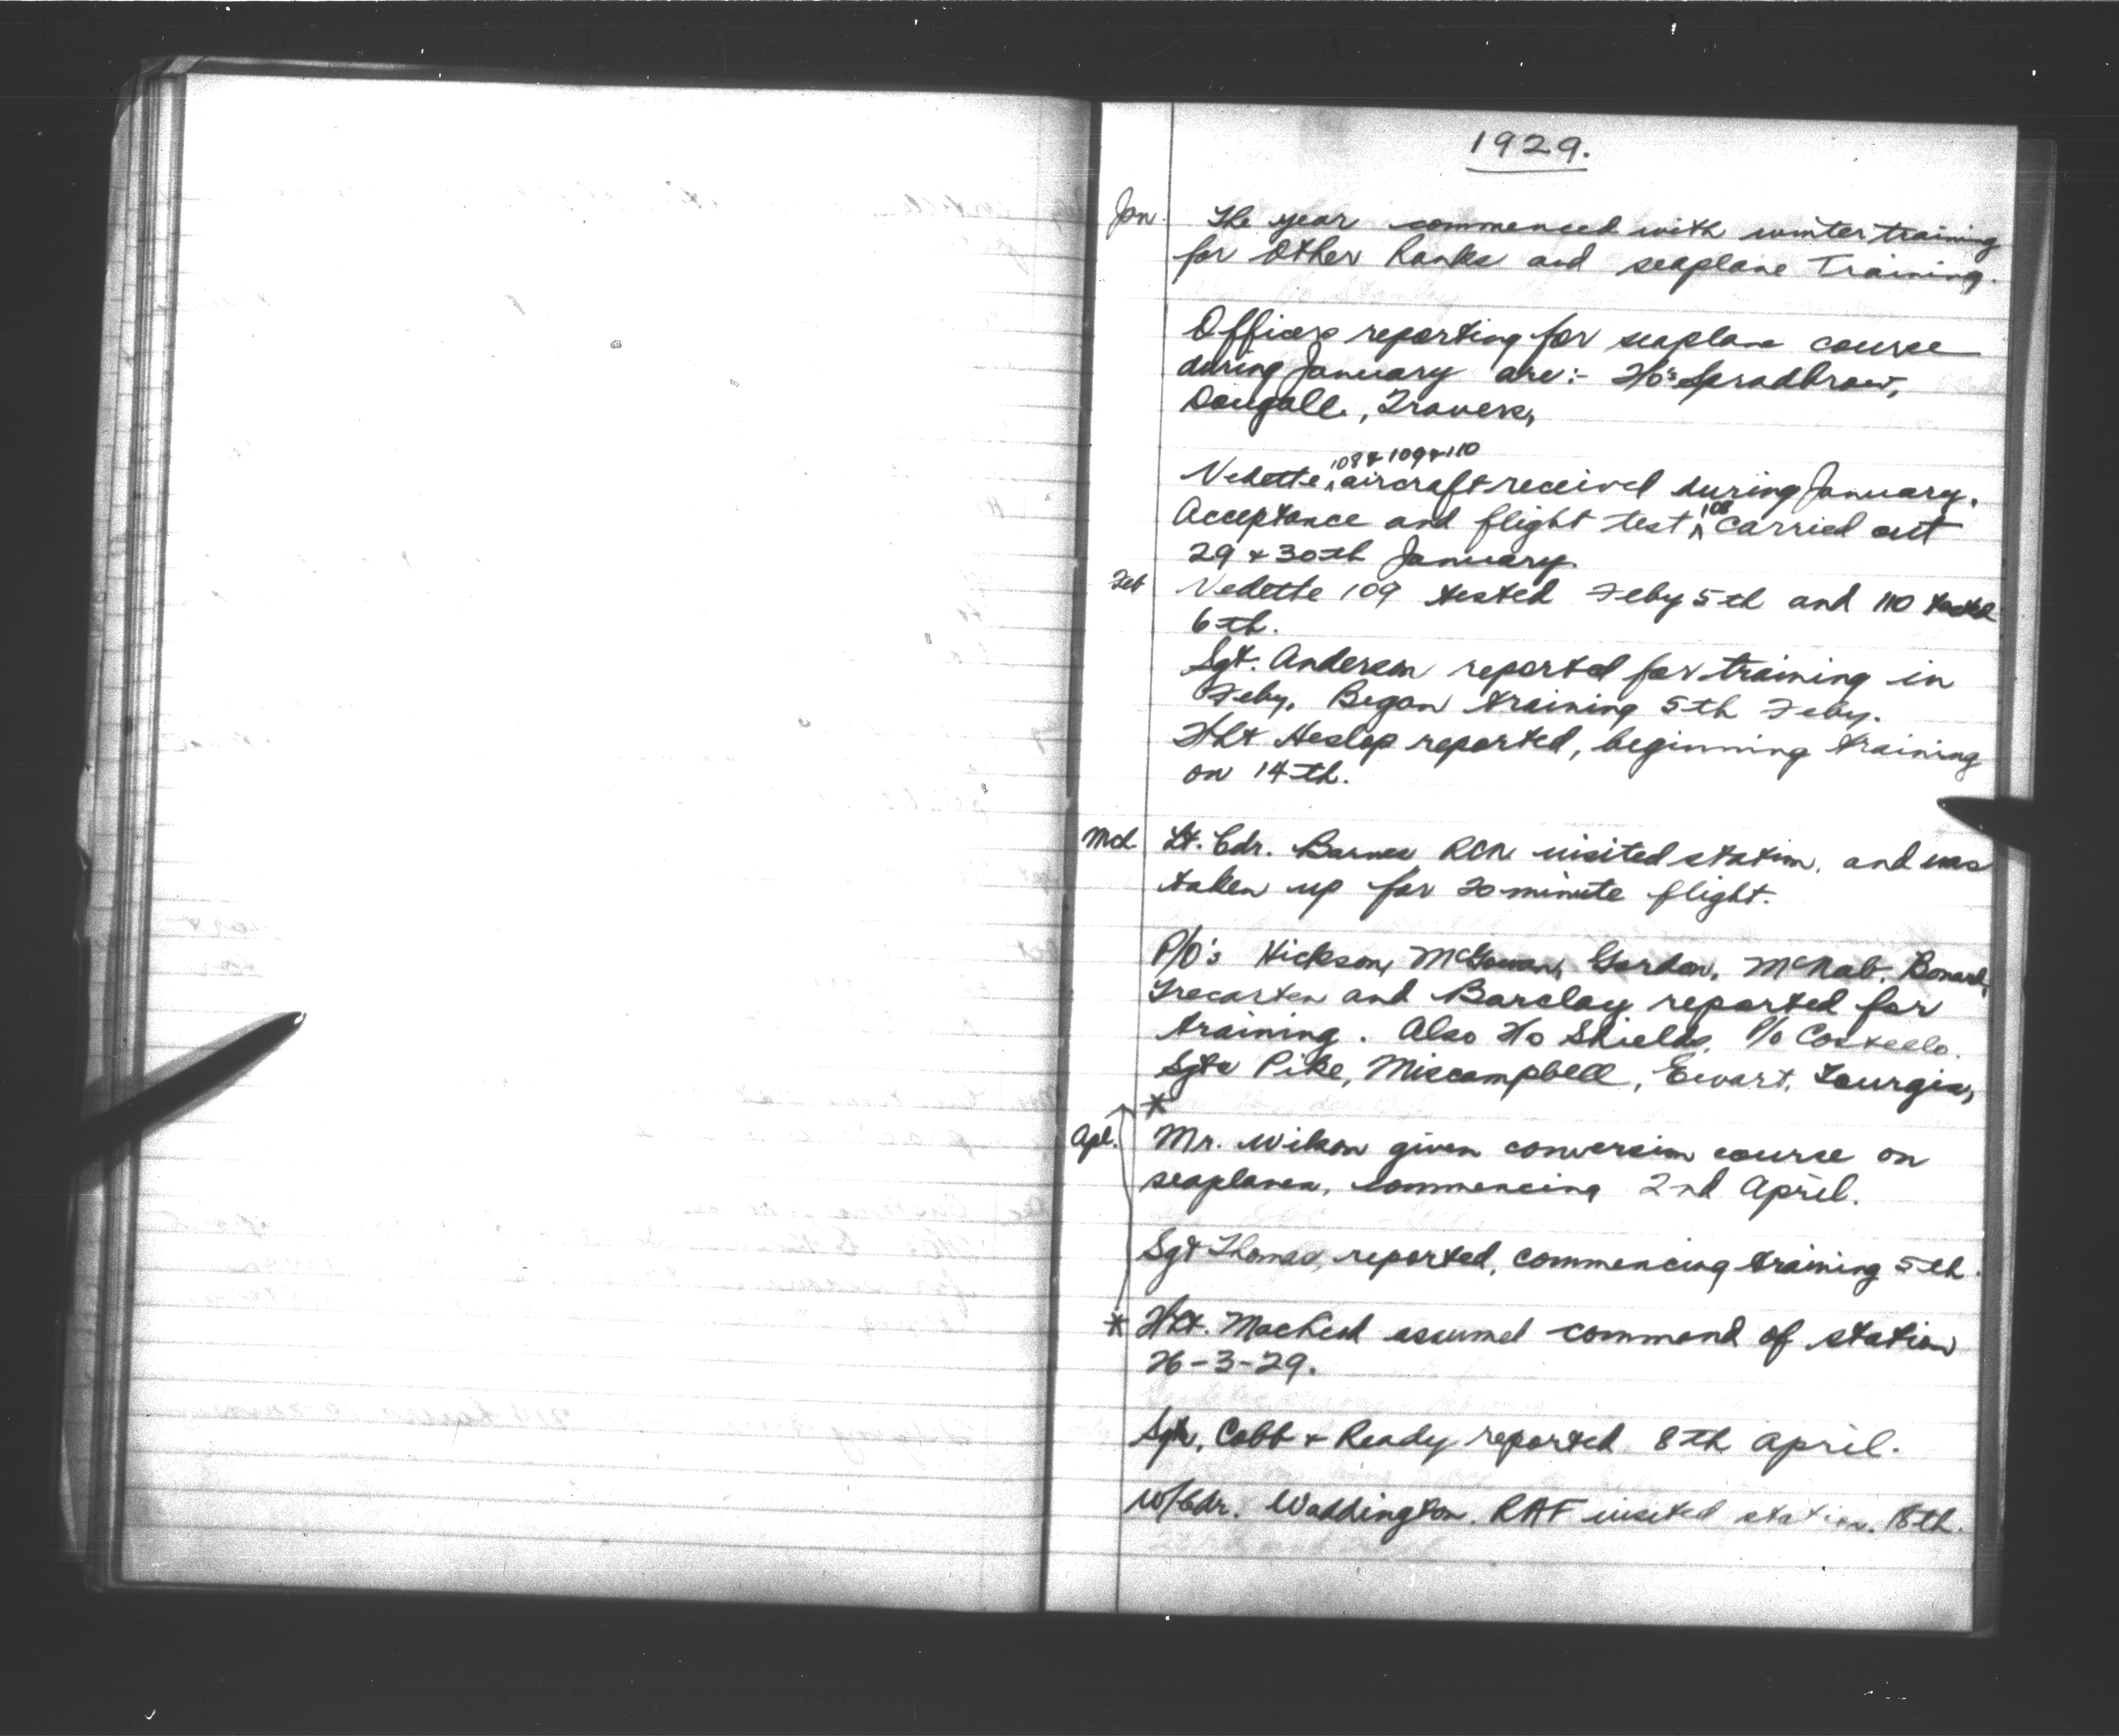 1929.
Jan. The year commenced with winter training
for Other Ranks and seaplane Training.
Officers reporting for seaplane course
during January are:- F/o's Spradbrow,
Dougall, Travers,
108 & 109 & 110
Vedette ^ aircraft received during January.
108
Acceptance and flight test ^ carried out
29 & 30th January.
Feb Vedette 109 tested Feby 5th and 110 tested
6th.
Sgt. Anderson reported for training in
Feby. Began training 5th Feby.
F/Lt Heslop reported, beginning training
on 14th.
Mch Lt. Cdr. Barnes RCN visited station, and was
taken up for 20 minute flight.
P/O's Hickson, McGowan, Gordon, McNab,
Trecarten and Barclay reported for
training. Also F/o Shields, P/o Costello.
Sgts Pike, Miscampbell, Ewart, Tourgis,
*
Apl. Mr. Wilson given conversion course on
seaplanes, commencing 2nd April.
Sgt Thomas, reported, commencing training 5th.
* F/Lt. MacLeod assumed command of station
26-3-29.
Sgts, Cobb & Ready reported 8th April.
W/Cdr. Waddington. RAF visited station. 18th.